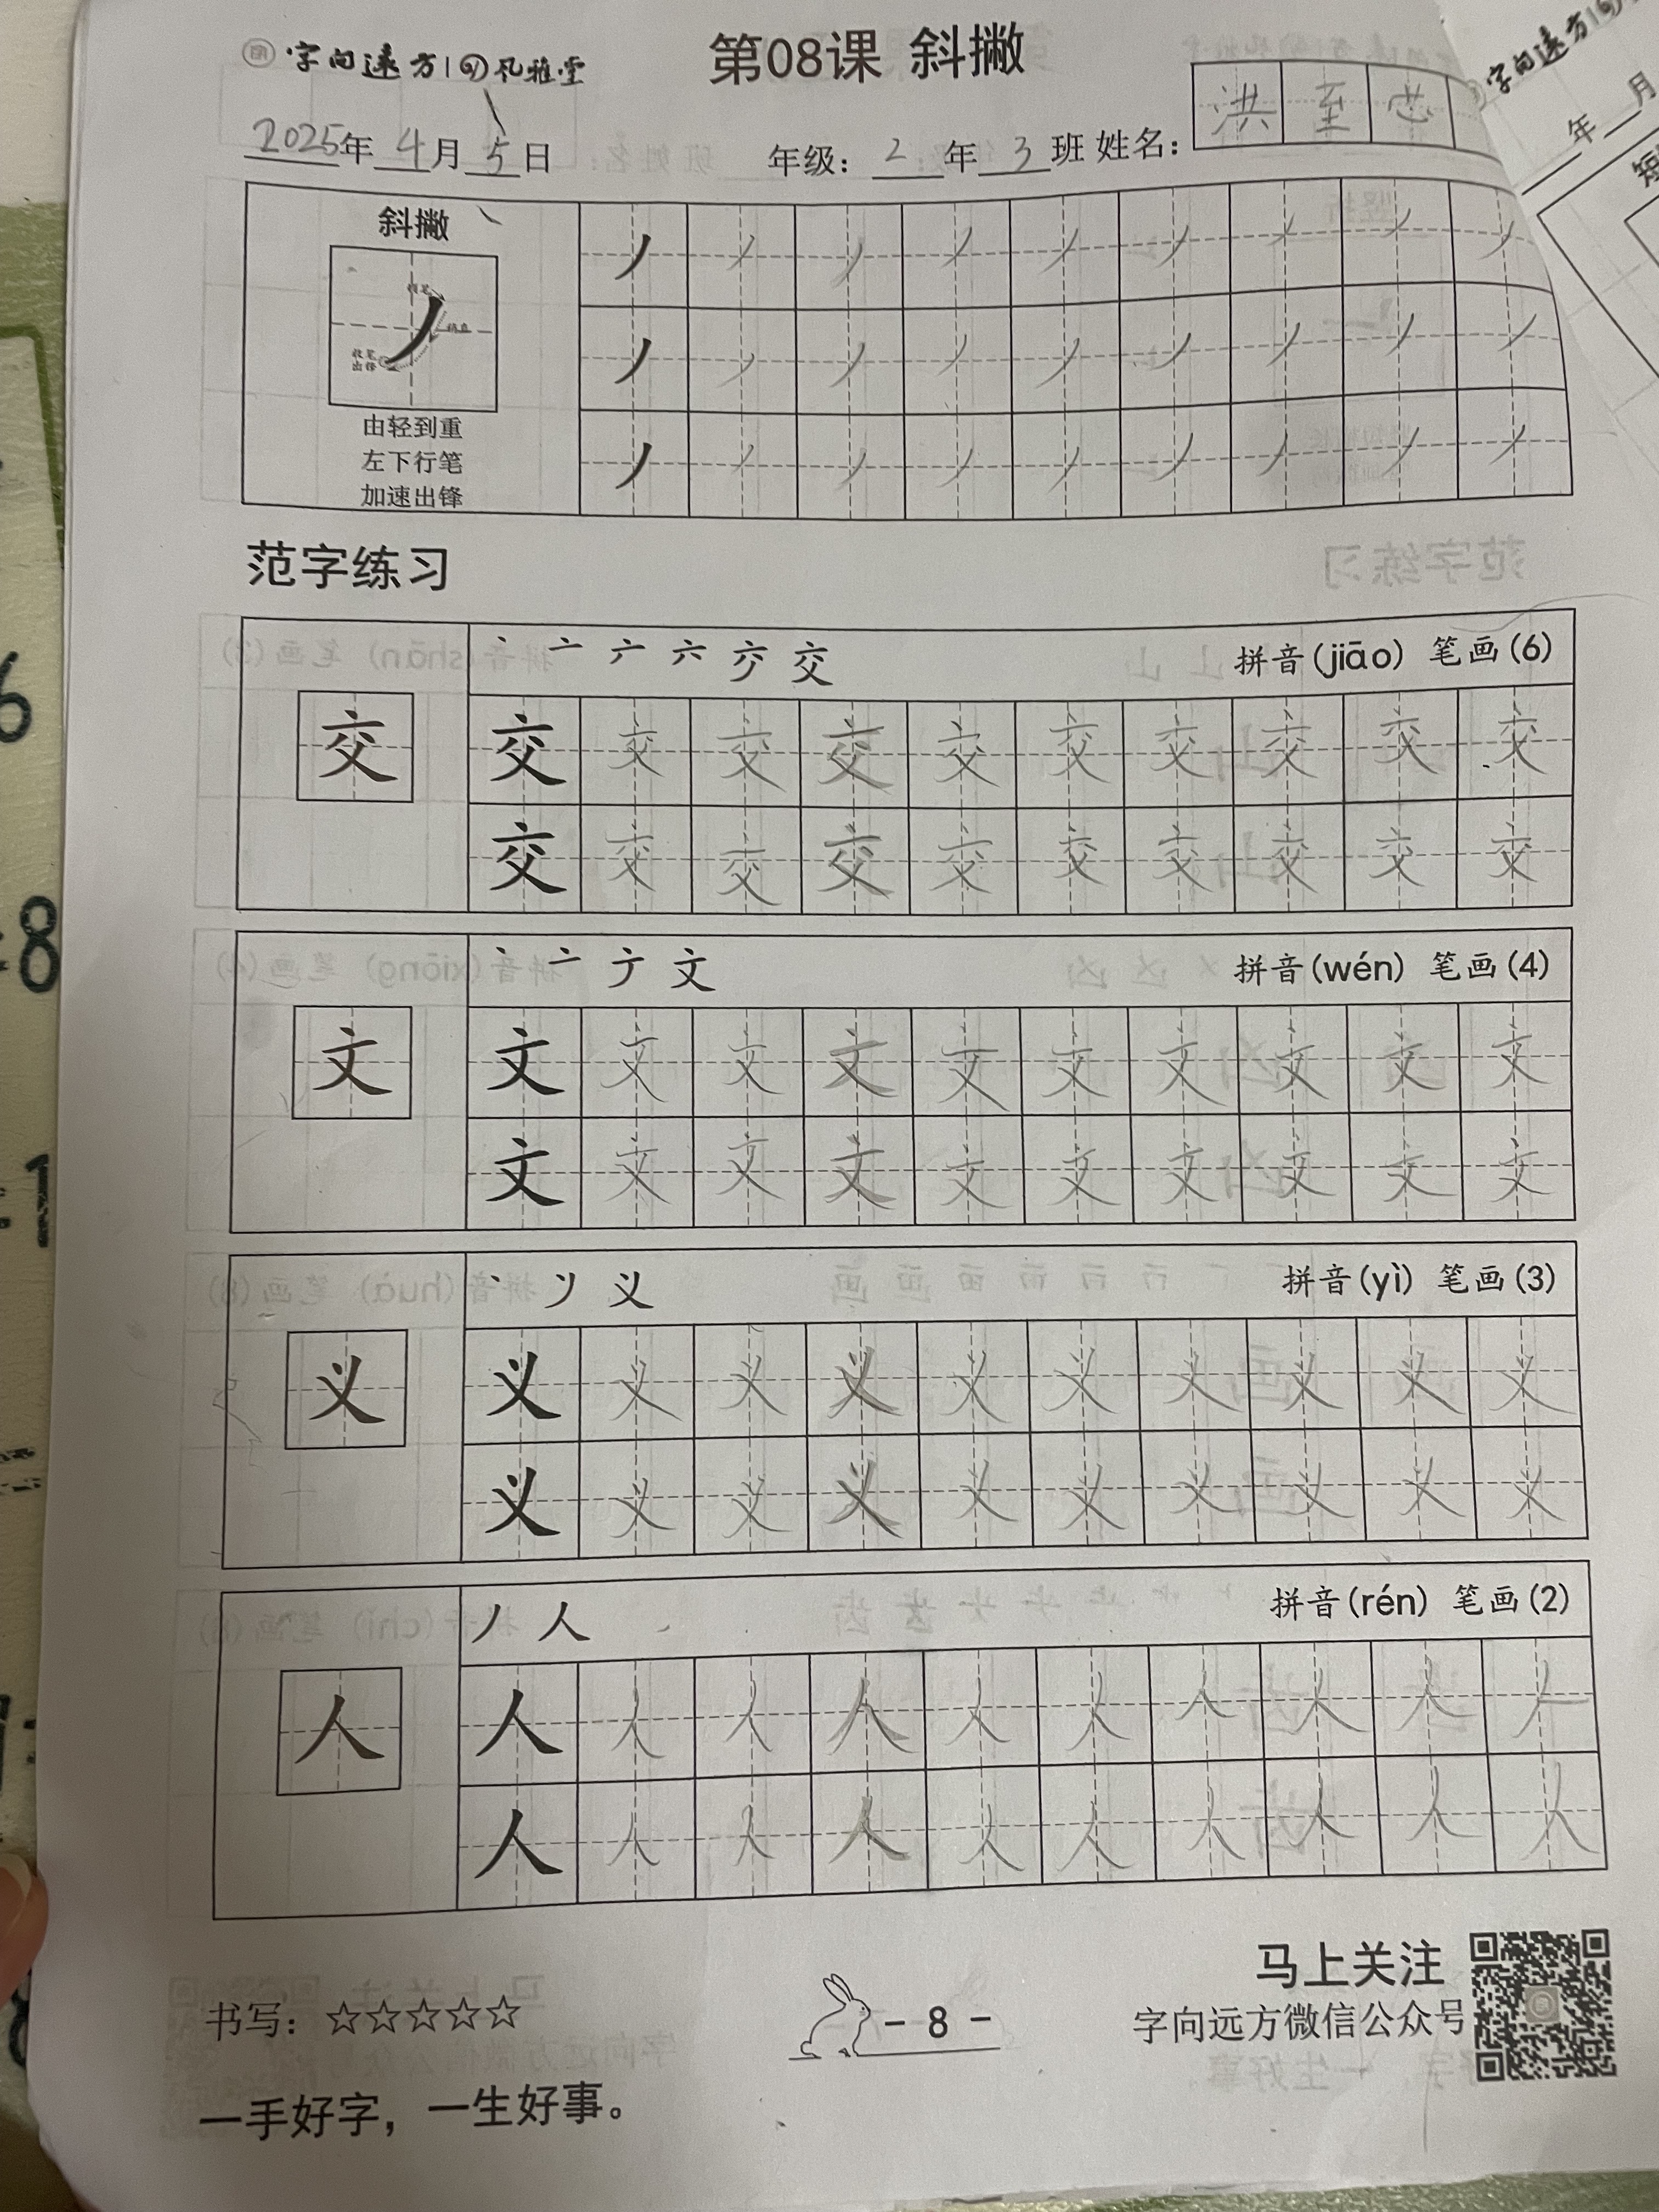 字向远方 风雅堂
第08课 斜撇
2025年 4月 5日 年级: 2年 3班 姓名: 洪至
斜撇
由轻到重
左下行笔
加速出锋
范字练习
拼音(jiāo) 笔画(6)
交 交 交 交 交 交 交 交 交 交 交
交 交 交 交 交 交 交 交 交 交
文 拼音(wén) 笔画(4)
文 文 文 文 文 文 文 文 文 文 文
文 文 文 文 文 文 文 文 文 文
义 拼音(yì) 笔画(3)
义 义 义 义 义 义 义 义 义 义 义
义 义 义 义 义 义 义 义 义 义
丿 人 拼音(rén) 笔画(2)
人 人 人 人 人 人 人 人 人 人 人
人 人 人 人 人 人 人 人 人 人
马上关注
书写: ☆☆☆☆☆ - 8 - 字向远方微信公众号
一手好字，一生好事。